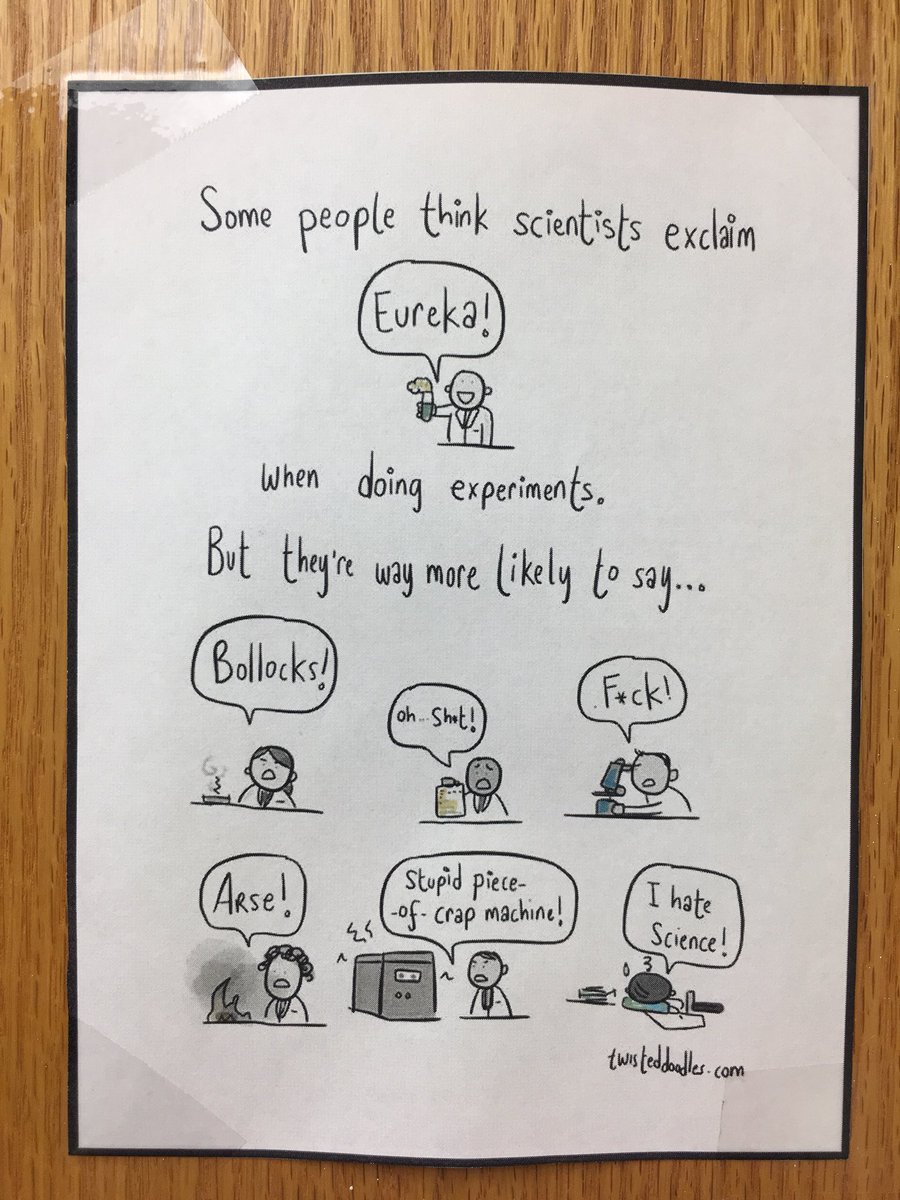 Some people think scientists exclaim
Eureka!
when doing experiments.
But they're way more likely to say...
Bollocks!
oh... Sh*t!
F*ck!
ARSE!
Stupid piece-
-of- crap machine!
I hate
Science!
twisteddoodles.com